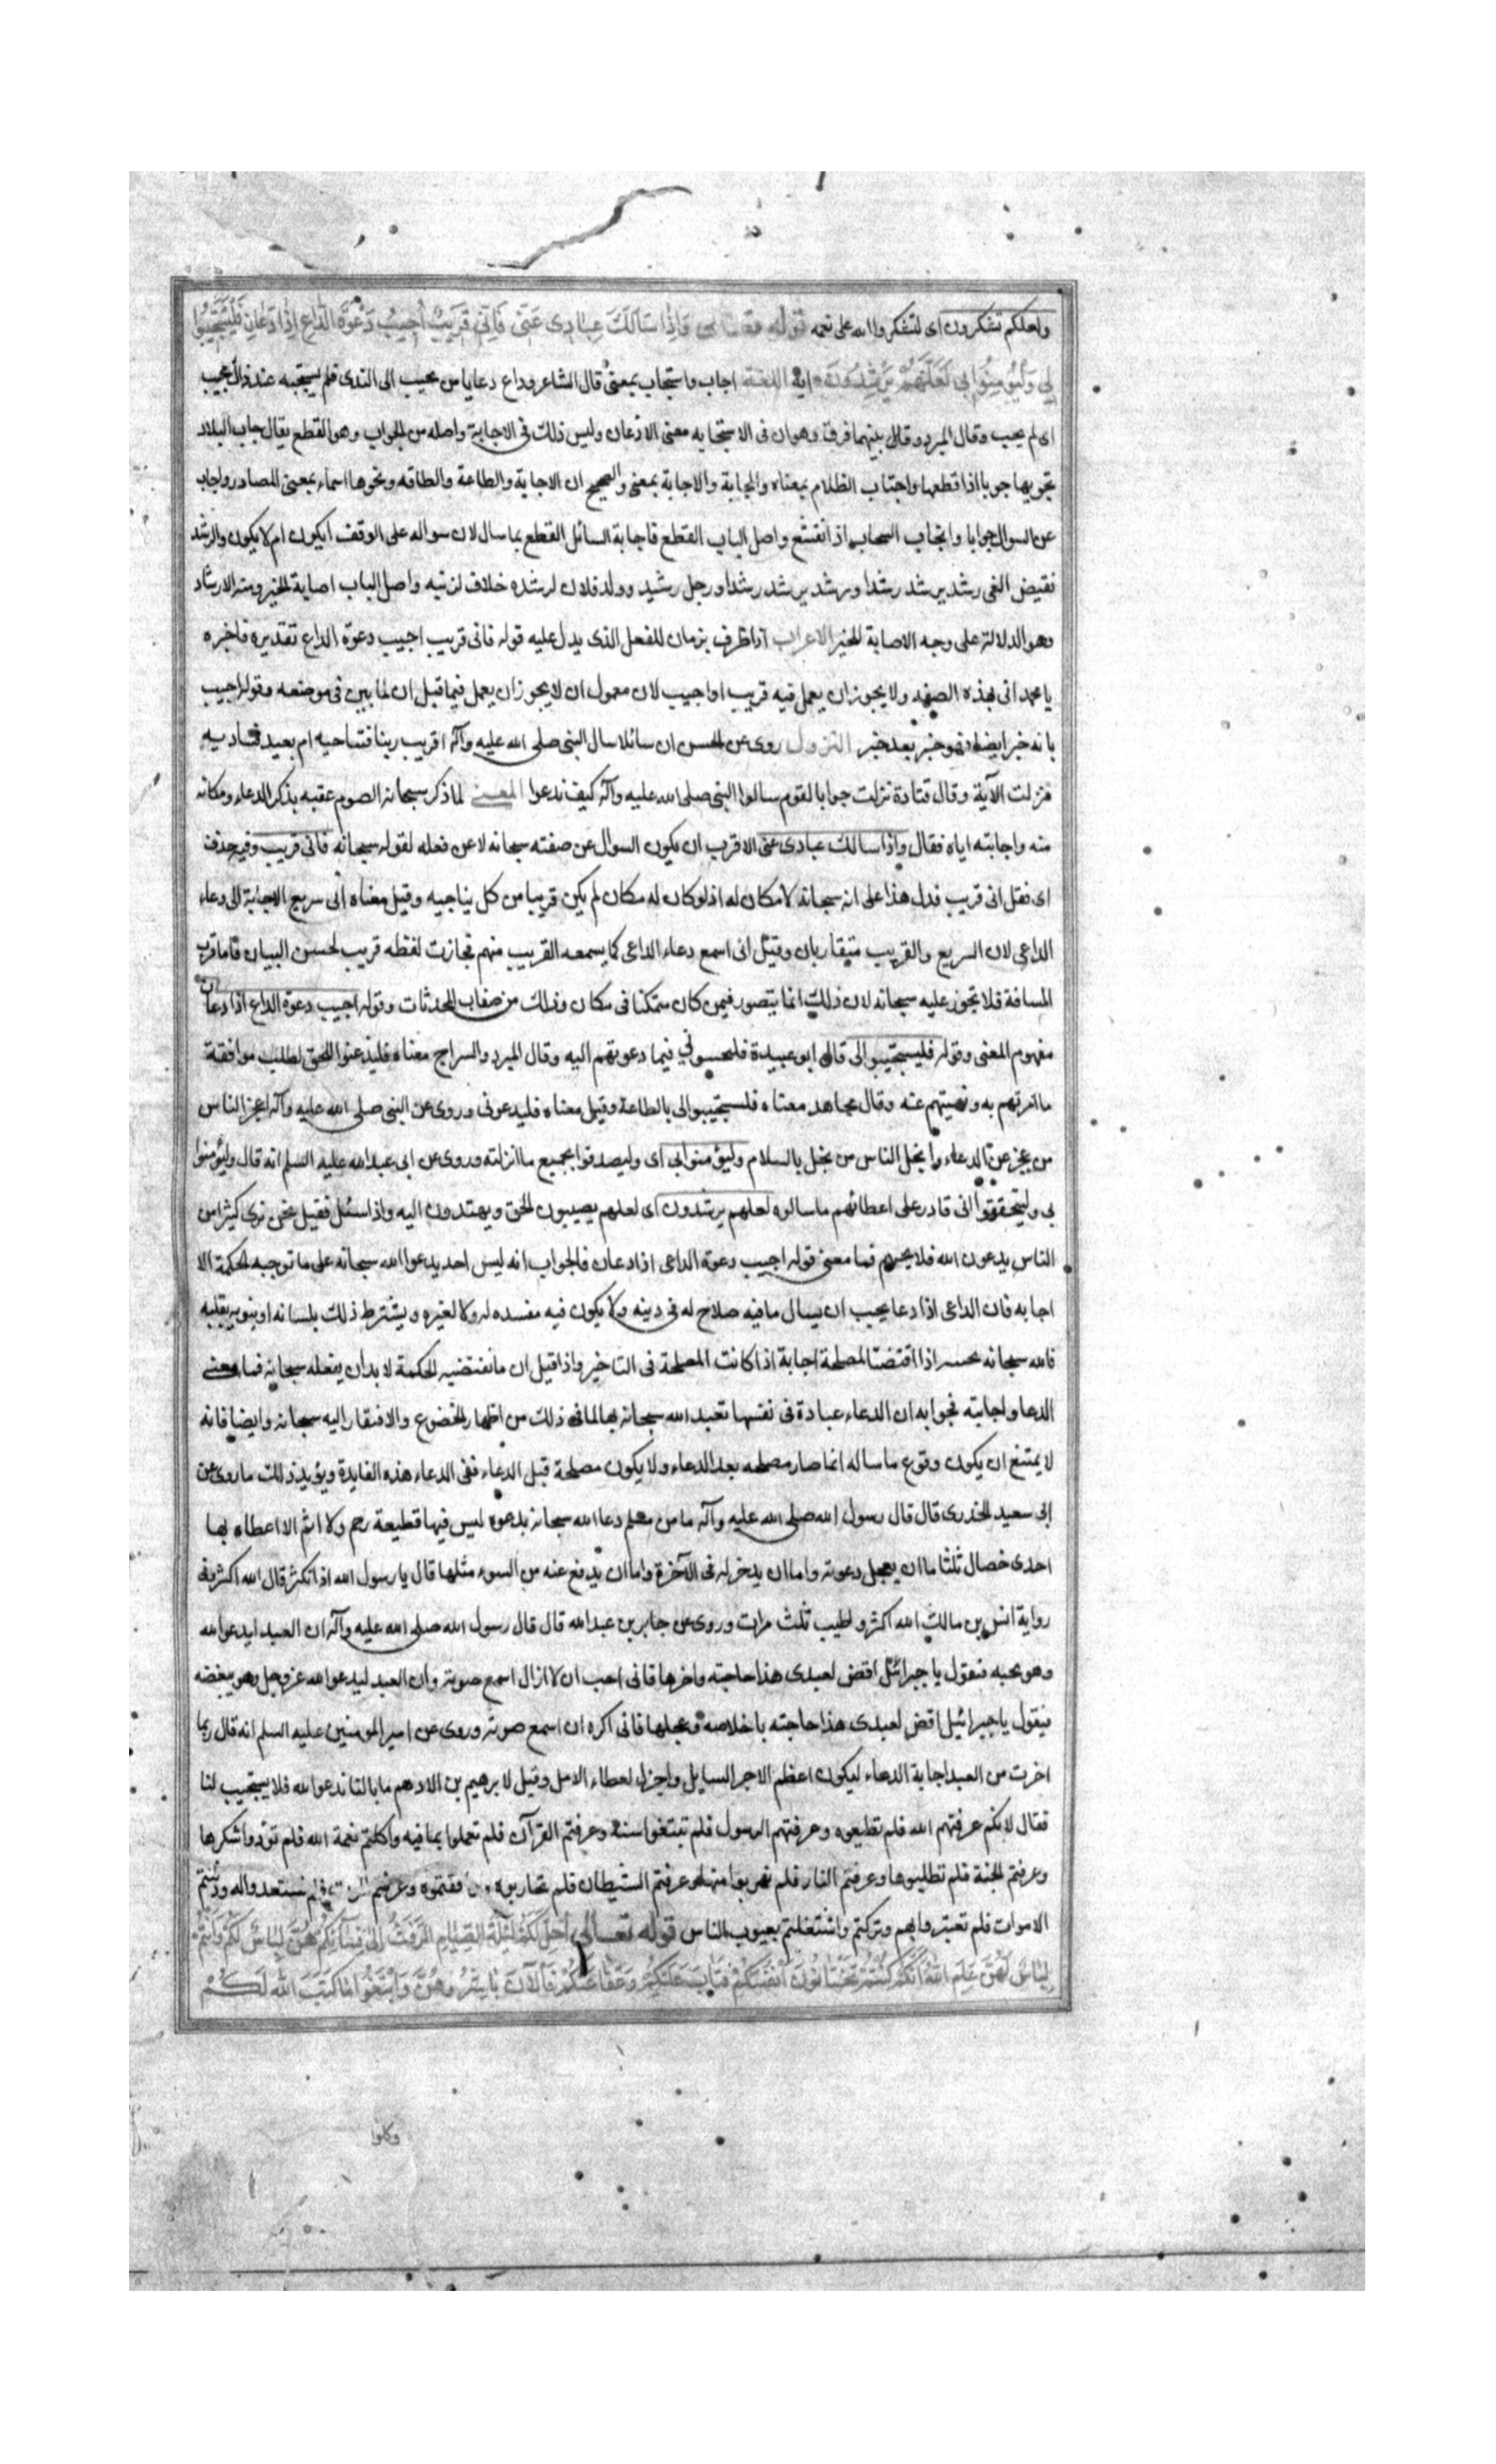 ولعلكم تشكرون اى لتشكروا الله على نعمه قوله تعالى وَاِذَا سَاَلَكَ عِبَادِى عَنّى فَاِنّى قَرِيبٌ اُجِيبُ دَعْوَةَ الدَّاعِ اِذَا دَعَانِ فَلْيَسْتَجِيبُوا
لِى وَلْيُؤمِنُوا بى لَعَلَّهُمْ يَرْشُدُونَ اية اللغة اجاب واستجاب بمعنى قال الشاعر وداع دعا يا من يجيب الى الندى فلم يستجبه عند ذاك مجيب
اى لم يجب وقال المبرد وقال بينهما فرق وهو ان فى الاستجابه معنى الاذعان وليس ذلك فى الاجابة واصله من الجواب وهو القطع يقال جاب البلاد
يجوبها جوبا اذا قطعها واجتاب الظلام بمعناه والجابة والاجابة بمعنى والصحيح ان الاجابة والطاعة والطاقه ونحوها اسماء بمعنى المصادر واجاب
عن السوال جوابا وانجاب السحاب اذ انقشع واصل الباب القطع فاجابة السائل القطع بما سال لان سواله على الوقف ايكون ام لا يكون والرشد
نقيض الغى رشد يرشد رشدا ورشد يرشد رشدا ورجل رشيد وولد فلان لرشده خلاف لزنيه واصل الباب اصابة الخير ومنه الارشاد
وهو الدلالة على وجه الاصابة للخير الاعراب اذا ظرف بزمان للفعل الذى يدل عليه قوله فانى قريب اجيب دعوة الداع تقديره فاخبره
يا محمد انى بهذه الصفه ولا يجوز ان يعمل فيه قريب او اجيب لان معمول ان لا يجوز ان يعمل فيما قبل ان لما بين فى موضعه وقوله اجيب
بانه خبر ايضا فهو خبر بعد خبر النزول روى عن الحسن ان سائلا سال النبى صلى الله عليه وآله اقريب ربنا فنناجيه ام بعيد فناديه
فنزلت الآية وقال قتادة نزلت جوابا لقوم سالوا النبى صلى الله عليه وآله كيف ندعوا المعنى لما ذكر سبحانه الصوم عقبه بذكر الدعاء ومكانه
منه واجابته اياه فقال واذا سالك عبادى عنى الاقرب ان يكون السوال عن صفته سبحانه لا عن فعله لقوله سبحانه فانى قريب وفيه حذف
اى فقل انى قريب فدل هذا على انه سبحانه لا مكان له اذ لو كان له مكان لم يكن قريبا من كل يناجيه وقيل معناه انى سريع الاجابة الى دعاء
الداعى لان السريع والقريب متقاربان وقيل انى اسمع دعاء الداعى كما يسمعه القريب منهم فجازت لفظه قريب لحسن البيان فاما قرب
المسافة فلا تجوز عليه سبحانه لان ذلك انما يتصور فيمن كان متمكنا فى مكان وذلك من صفات المحدثات وقوله اجيب دعوة الداع اذا دعان
مفهوم المعنى وقوله فليستجيبوا لى قال ابو عبيدة فليجيبونى فيما دعوتهم اليه وقال المبرد والسراج معناه فليذعنوا للحق لطلب موافقة
ما امرتهم به ونهيتهم عنه وقال مجاهد معناه فليستجيبوا لى بالطاعة وقيل معناه فليدعونى وروى عن النبى صلى الله عليه وآله اعجز الناس
من يعجز عن الدعاء وابخل الناس من بخل بالسلام وليؤمنوا بى اى وليصدقوا بجميع ما انزلته وروى عن ابى عبد الله عليه السلم انه قال وليؤمنوا
بى وليتحققوا انى قادر على اعطائهم ما سالوه لعلهم يرشدون اى لعلهم يصيبون الحق ويهتدون اليه واذا سئل فقيل نحن نرى كثيرا من
الناس يدعون الله فلا يجيبهم فما معنى قوله اجيب دعوة الداعى اذا دعان فالجواب انه ليس احد يدعوا الله سبحانه على ما توجبه الحكمة الا
اجابه فان الداعى اذا دعا يجب ان يسال ما فيه صلاح له فى دينه ولا يكون فيه مفسده له ولا لغيره ويشترط ذلك بلسانه او ينويه بقلبه
فالله سبحانه اذا اقتضت المصلحة اجابة اذا كانت المصلحة فى التاخير واذا قيل ان ما تقتضيه الحكمة لا بد ان يفعله سبحانه فما معنى
الدعا واجابته فجوابه ان الدعاء عبادة فى نفسها تعبد الله سبحانه بها لما فى ذلك من اظهار الخضوع والافتقار اليه سبحانه وايضا فانه
لا يمتنع ان يكون وقوع ما ساله انما صار مصلحه بعد الدعاء ولا يكون مصلحة قبل الدعاء ففى الدعاء هذه الفايدة ويؤيد ذلك ما روى عن
ابى سعيد الخدرى قال قال رسول الله صلى الله عليه وآله ما من مسلم دعا الله سبحانه بدعوه ليس فيها قطيعة رحم ولا اثم الا اعطاه بها
احدى خصال ثلث اما ان يعجل دعوته واما ان يدخر له فى الآخرة واما ان يدفع عنه من السوء مثلها قال يا رسول الله اذا نكثر قال الله اكثر وفى
رواية انس بن مالك الله اكثر واطيب ثلث مرات وروى عن جابر بن عبد الله قال قال رسول الله صلى الله عليه وآله ان العبد ليدعو الله
وهو يحبه فيقول يا جبرائيل اقض لعبدى هذا حاجته واخرها فانى احب ان لا ازال اسمع صوته وان العبد ليدعوا الله عز وجل وهو يبغضه
فيقول يا جبرائيل اقض لعبدى هذا حاجته باخلاصه وعجلها فانى اكره ان اسمع صوته وروى عن امير المومنين عليه السلم انه قال ربما
اخرت من العبد اجابة الدعاء ليكون اعظم الاجر السايل واجزل لعطاء الامل وقيل لابرهيم بن الادهم ما بالنا ندعو الله فلا يستجيب لنا
فقال لانكم عرفتهم الله فلم تطيعوه وعرفتهم الرسول فلم تبتغوا سنته وعرفتم القرآن فلم تعملوا بما فيه واكلتم نعمة الله فلم تؤدوا شكرها
وعرفتم الجنة فلم تطلبوها وعرفتم النار فلم تهربوا منها وعرفتم الشيطان فلم تحاربوه وعرفتم فلم تستعدوا له ودفنتم
الاموات فلم تعتبروا بهم وتركتم واشتغلتم بعيوب الناس قوله تعالى اُحِلَّ لَكُمْ لَيْلَةَ الصِّيَامِ الرَّفَثُ اِلَى نِسَائِكُمْ هُنَّ لِبَاسٌ لَكُمْ وَاَنْتُمْ
لِبَاسٌ لَهُنَّ عَلِمَ اللهُ اَنَّكُمْ كُنْتُمْ تَخْتَانُونَ اَنْفُسَكُمْ فَتَابَ عَلَيْكُمْ وَعَفَا عَنْكُمْ فَالْآنَ بَاشِرُوهُنَّ وَابْتَغُوا مَا كَتَبَ اللهُ لَكُمْ
وكلوا